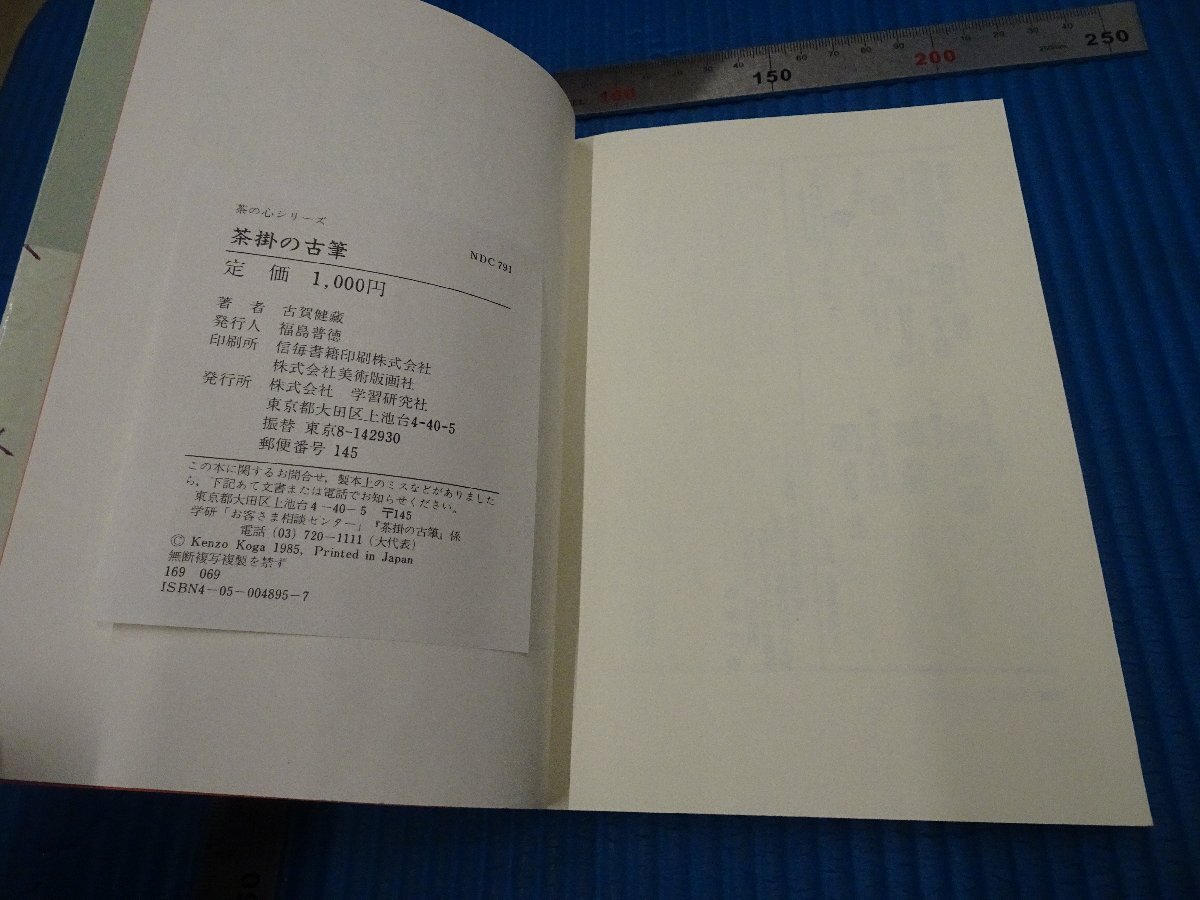 茶の心シリーズ
茶掛の古筆
NDC 791
定 価 1,000円
著 者 古賀健蔵
発行人 福島普德
印刷所 信毎書籍印刷株式会社
株式会社美術版画社
発行所 株式会社 学習研究社
東京都大田区上池台4-40-5
振替 東京8-142930
郵便番号 145
この本に関するお問合せ,製本上のミスなどがありました
ら,下記あて文書または電話でお知らせください。
東京都大田区上池台4-40-5 〒145
学研「お客さま相談センター」『茶掛の古筆』係
電話 (03) 720-1111 (大代表)
© Kenzo Koga 1985, Printed in Japan
無断複写複製を禁ず
169 069
ISBN4-05-004895-7
100 150 200 250